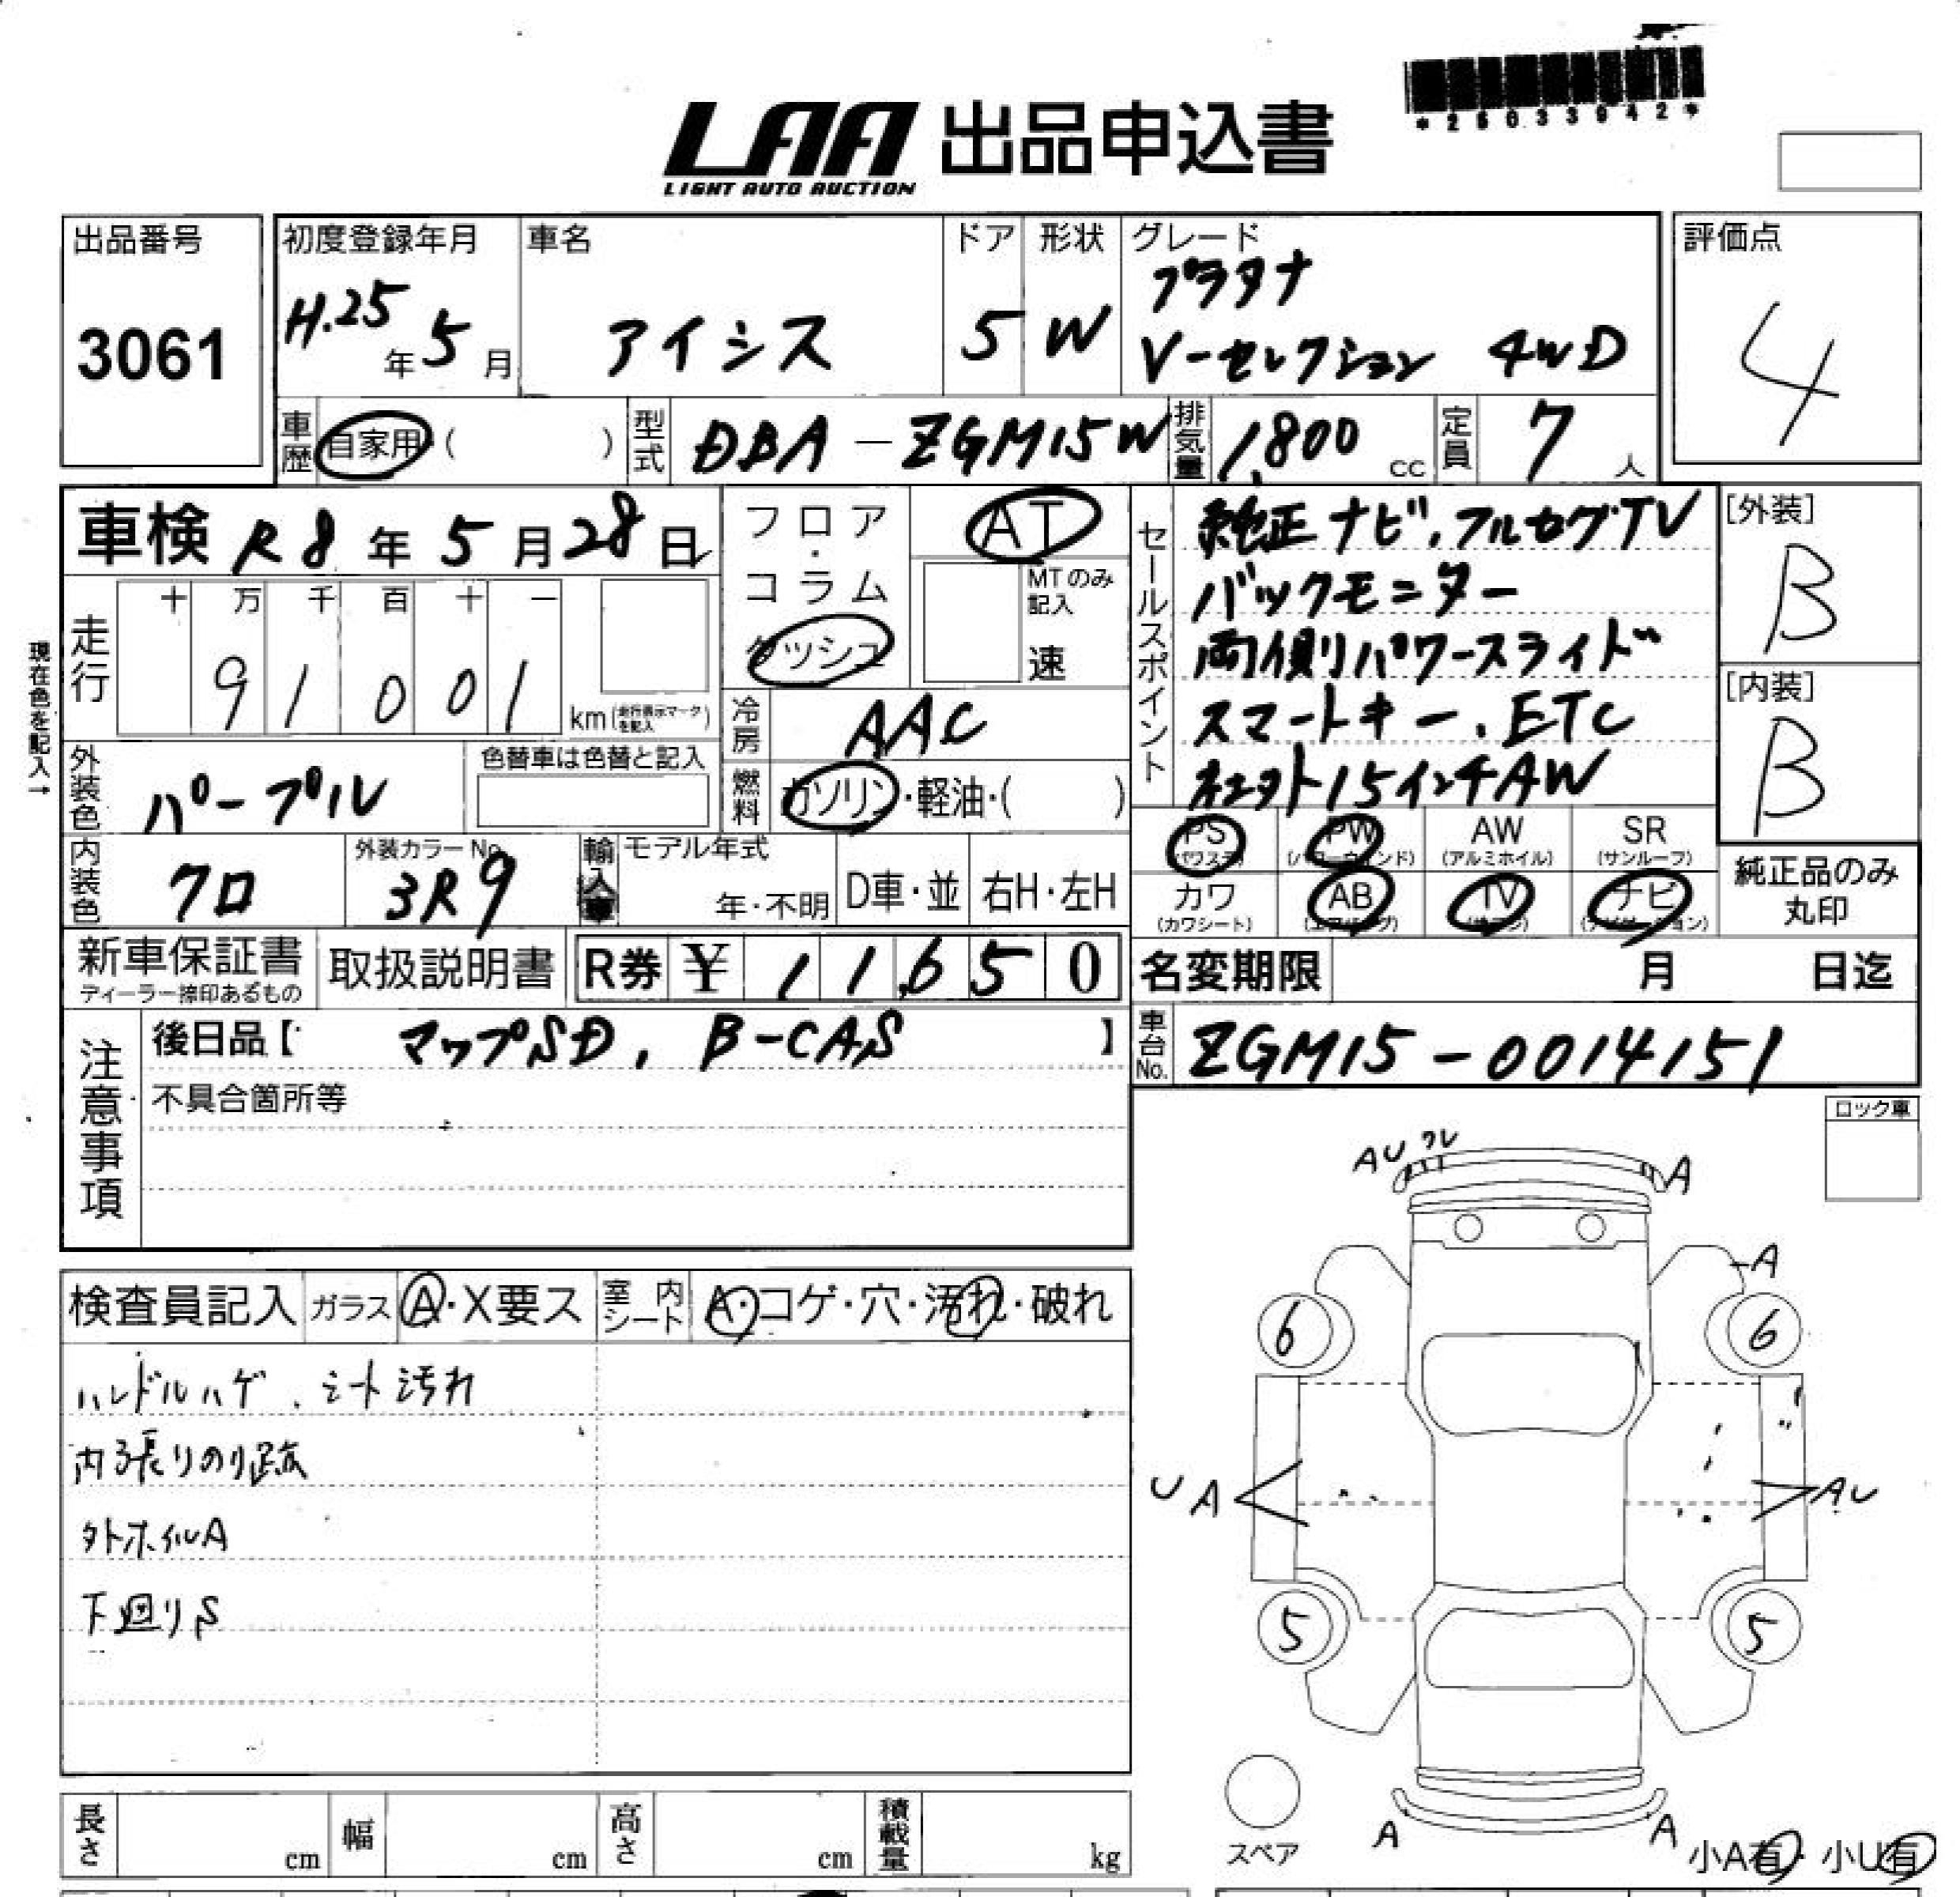 *26033942*
LAA 出品申込書
LIGHT AUTO AUCTION
出品番号
3061
初度登録年月
H.25年5月
車名
アイシス
ドア
5
形状
W
グレード
プラタナ
V-セレクション 4WD
評価点
4
車歴 自家用・( )
型式 DBA-ZGM15W
排気量 1,800 cc
定員 7人
車検 R8年5月28日
走行
十 万 千 百 十 一
9 1 0 0 1
km(走行表示マークを記入)
現在色を記入→
外装色 パープル
色替車は色替と記入
内装色 クロ
外装カラーNo.
3R9
フロア・コラム
ダッシュ
AT
MTのみ記入
速
冷房 AAC
燃料 ガソリン・軽油・( )
輸入車
モデル年式
年・不明
D車・並
右H・左H
セールスポイント
純正ナビ、フルセグTV
バックモニター
両側パワースライド
スマートキー、ETC
社外15インチAW
[外装]
B
[内装]
B
PS(パワステ)
PW(パワーウィンド)
AW(アルミホイル)
SR(サンルーフ)
カワ(カワシート)
AB(エアバッグ)
TV
ナビ(ナビゲーション)
純正品のみ
丸印
新車保証書
ディーラー捺印あるもの
取扱説明書
R券 ¥ 11,650
名変期限 月 日迄
車台No. ZGM15-0014151
注意事項
後日品【 マップSD, B-CAS 】
不具合箇所等
ロック車
検査員記入
ガラス A・X要ス
室内シート A・コゲ・穴・汚れ・破れ
ハンドルハゲ、シート汚れ
内張りのり跡
外ホイルA
下廻りS
AU ワレ
A
A
6
6
UA
AU
5
5
A
A
スペア
小A有・小U有
長さ cm
幅 cm
高さ cm
積載量 kg